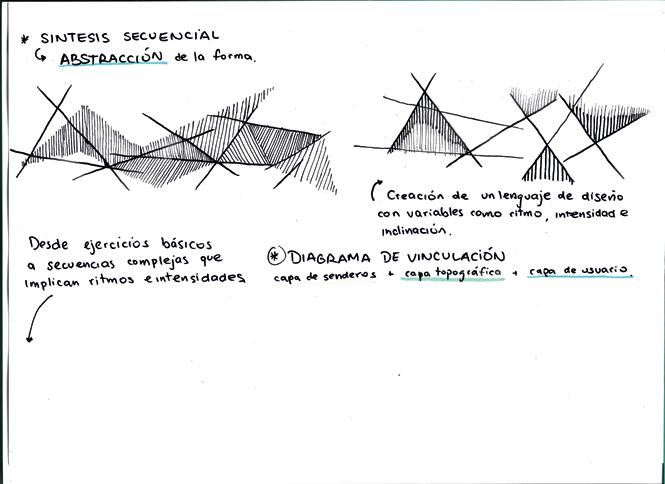 * SINTESIS SECUENCIAL
ABSTRACCIÓN de la forma.
Creación de un lenguaje de diseño
con variables como ritmo, intensidad e
inclinación.
Desde ejercicios básicos
a secuencias complejas que
implican ritmos e intensidades
* DIAGRAMA DE VINCULACIÓN
capa de senderos + capa topográfica + capa de usuario.